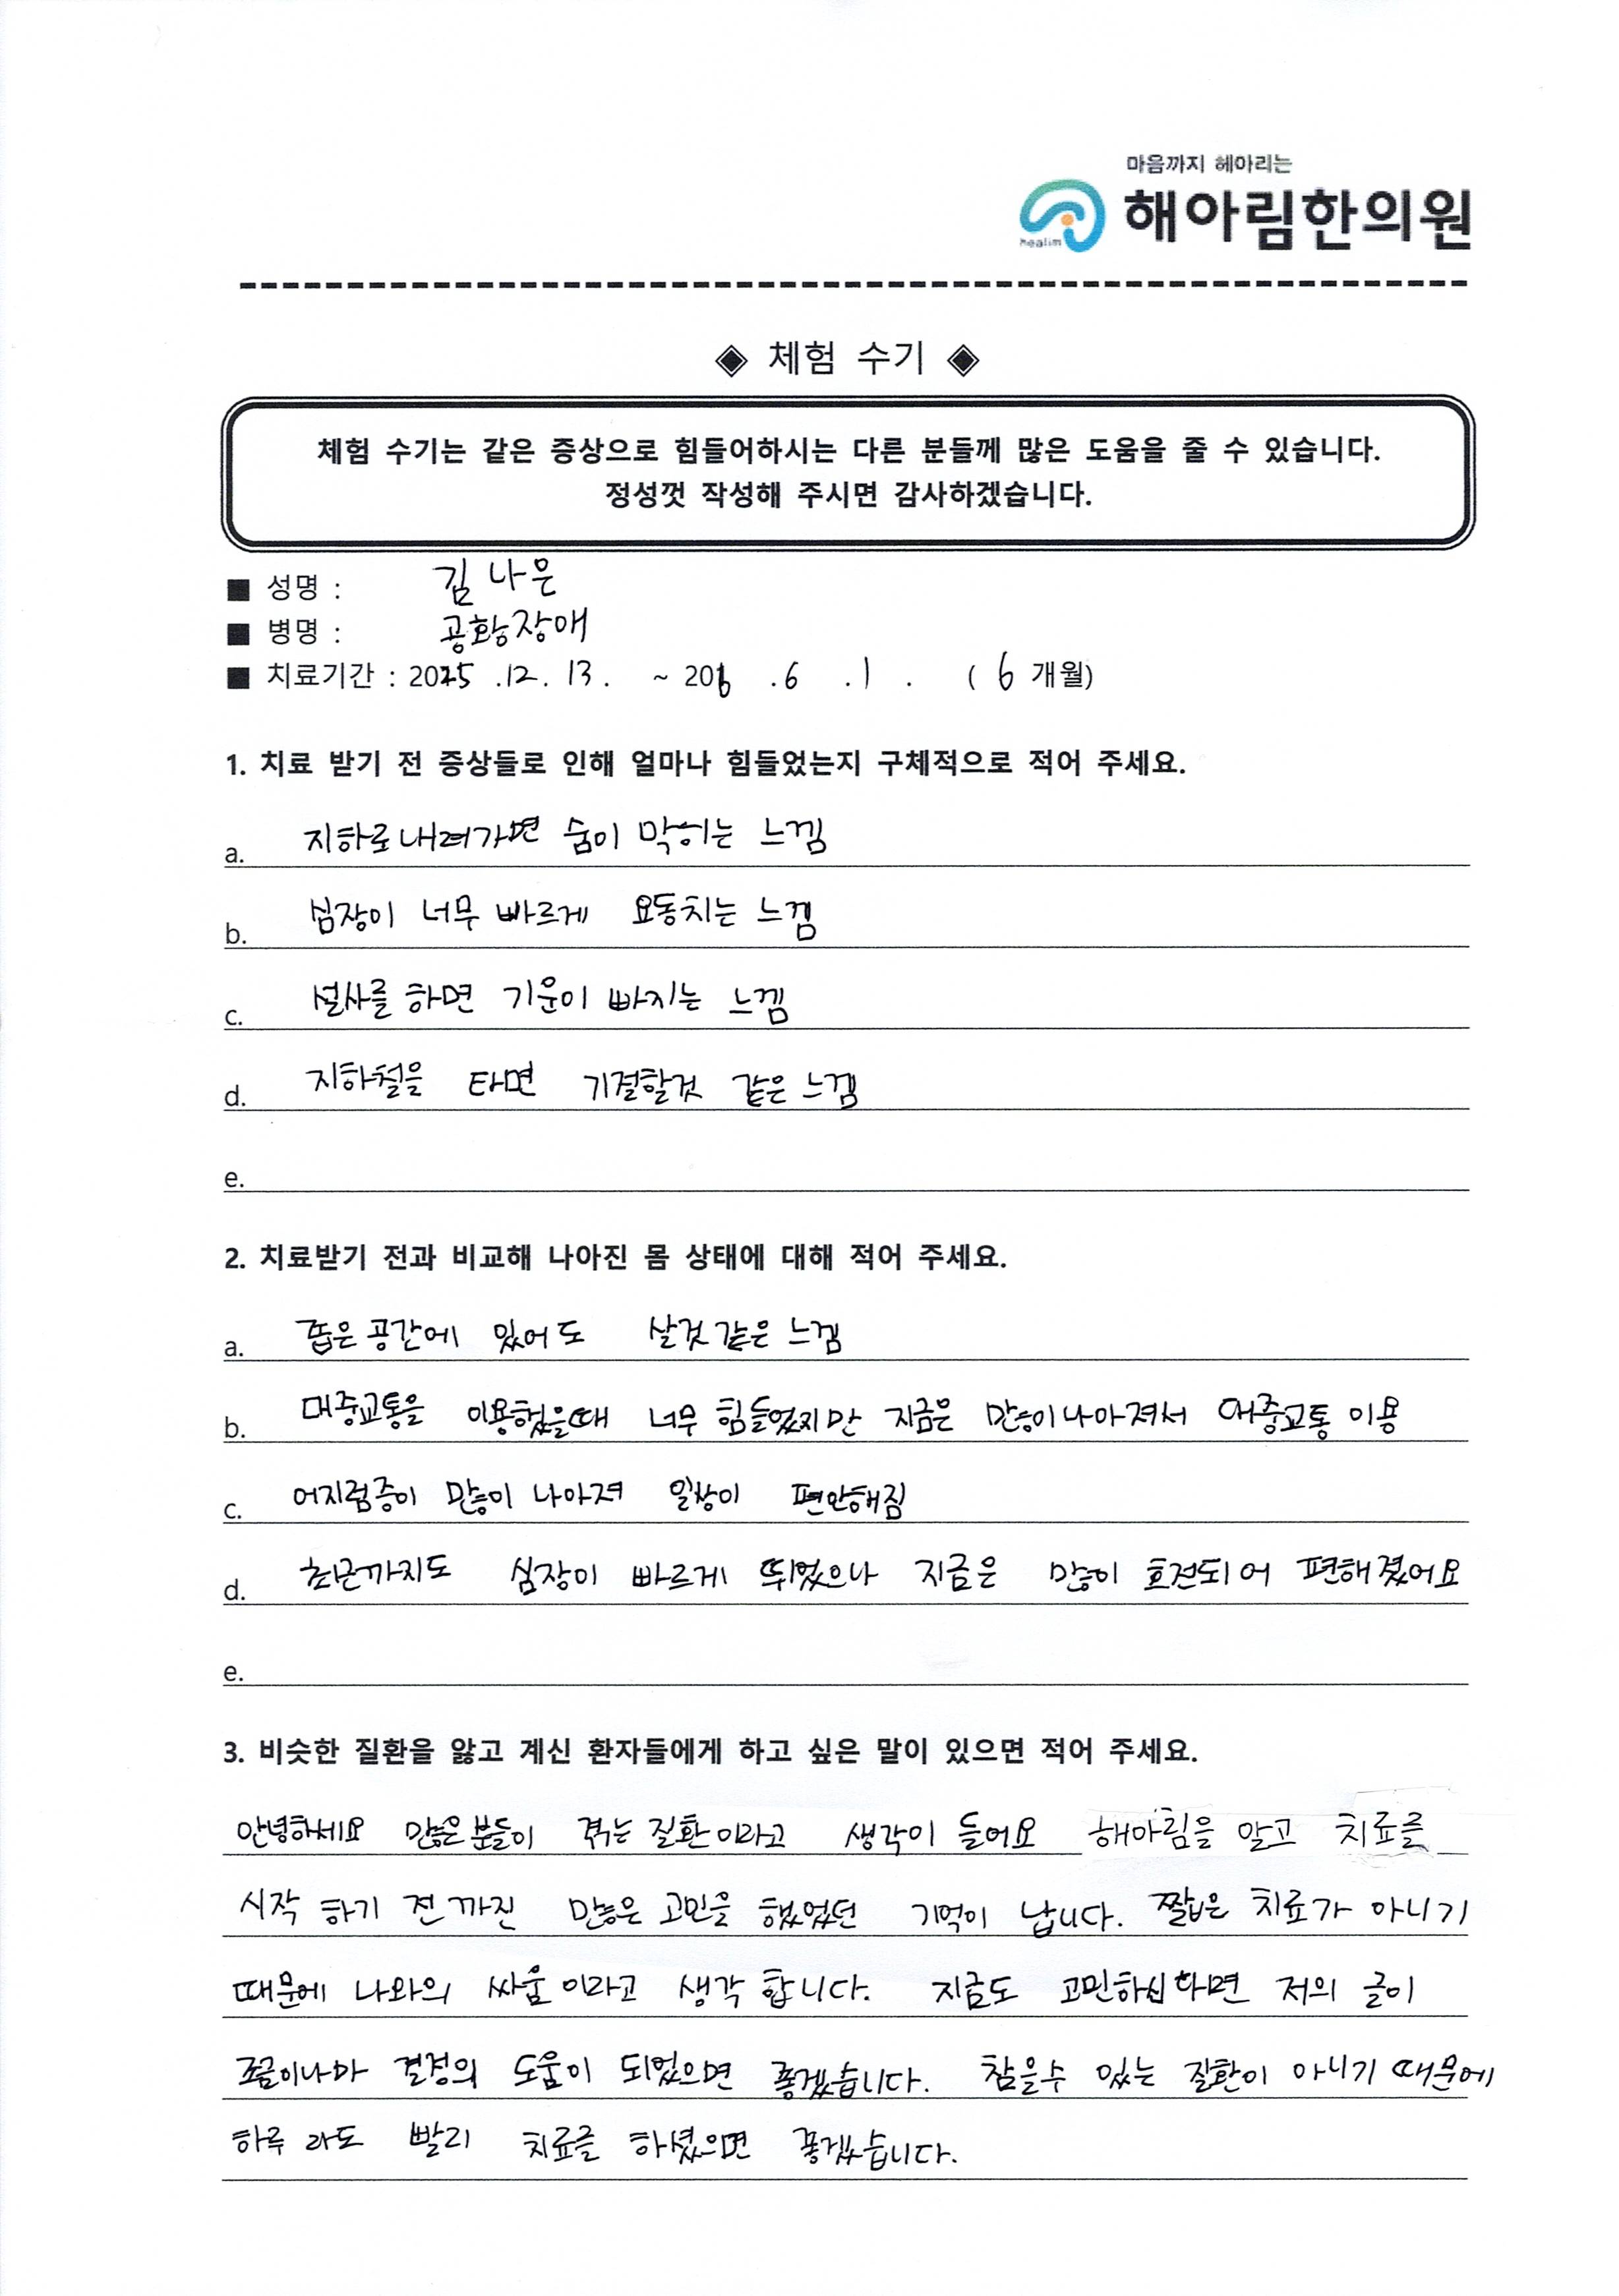 마음까지 헤아리는
해아림한의원
healim
◈ 체험 수기 ◈
체험 수기는 같은 증상으로 힘들어하시는 다른 분들께 많은 도움을 줄 수 있습니다.
정성껏 작성해 주시면 감사하겠습니다.
■ 성명 : 김나은
■ 병명 : 공황장애
■ 치료기간 : 2025 .12. 13. ~ 206 .6 .1 . ( 6 개월)
1. 치료 받기 전 증상들로 인해 얼마나 힘들었는지 구체적으로 적어 주세요.
a. 지하로 내려가면 숨이 막히는 느낌
b. 심장이 너무 빠르게 요동치는 느낌
c. 설사를 하면 기운이 빠지는 느낌
d. 지하철을 타면 기절할것 같은 느낌
e.
2. 치료받기 전과 비교해 나아진 몸 상태에 대해 적어 주세요.
a. 좁은 공간에 있어도 살것 같은 느낌
b. 대중교통을 이용했을때 너무 힘들었지만 지금은 많이 나아져서 대중교통 이용
c. 어지럼증이 많이 나아져 일상이 편안해짐
d. 최근까지도 심장이 빠르게 뛰었으나 지금은 많이 호전되어 편해졌어요
e.
3. 비슷한 질환을 앓고 계신 환자들에게 하고 싶은 말이 있으면 적어 주세요.
안녕하세요 많은 분들이 겪는 질환이라고 생각이 들어요 해아림을 알고 치료를
시작 하기 전 까진 많은 고민을 했었던 기억이 납니다. 짧은 치료가 아니기
때문에 나와의 싸움이라고 생각 합니다. 지금도 고민하신다면 저의 글이
조금이나마 결정의 도움이 되었으면 좋겠습니다. 참을수 있는 질환이 아니기 때문에
하루 라도 빨리 치료를 하셨으면 좋겠습니다.